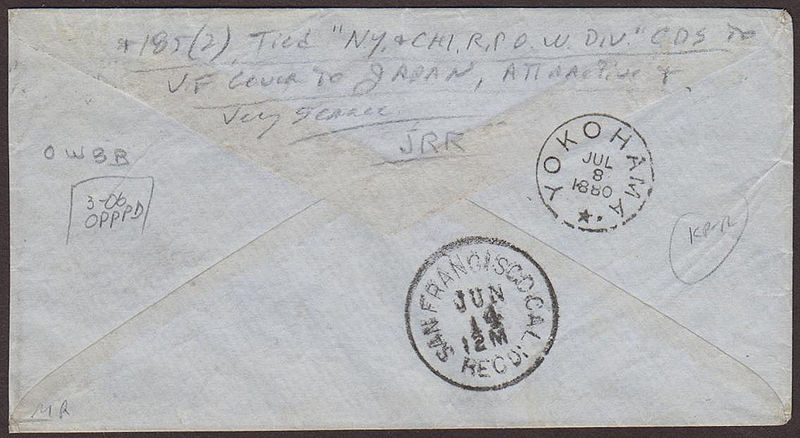 *185(2), Tied "NY. & CHI. R.P.O. W. DIV." CDS to
VF cover to JAPAN, Attractive &
Very scarce
JRR
OWBB
3-06
OPPPD
YOKOHAMA
JUL
8
1880
SAN FRANCISCO, CAL.
JUN
14
12M
REC'D.
MR